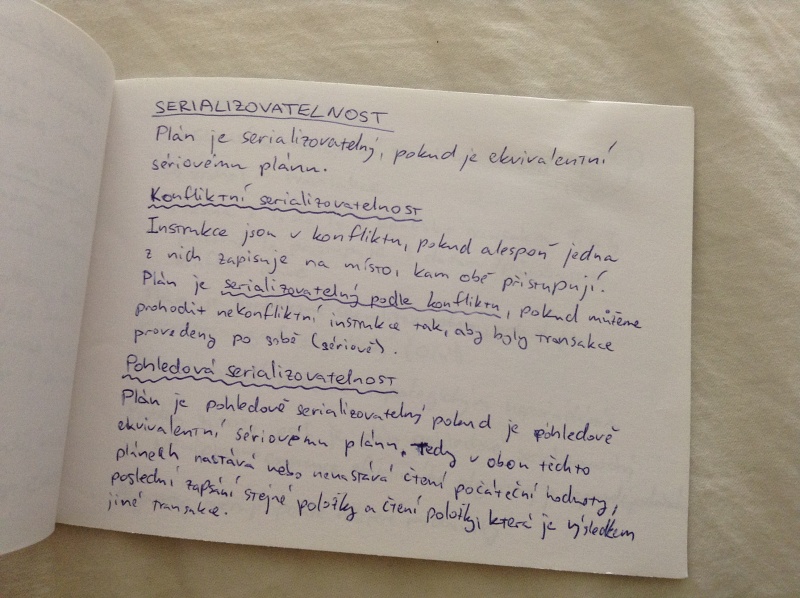 SERIALIZOVATELNOST
Plán je serializovatelný, pokud je ekvivalentní
sériovému plánu.
Konfliktní serializovatelnost
Instrukce jsou v konfliktu, pokud alespoň jedna
z nich zapisuje na místo, kam obě přistupují.
Plán je serializovatelný podle konfliktu, pokud můžeme
prohodit nekonfliktní instrukce tak, aby byly transakce
provedeny po sobě (sériově).
Pohledová serializovatelnost
Plán je pohledově serializovatelný pokud je pohledově
ekvivalentní sériovému plánu, tedy v obou těchto
plánech nastává nebo nenastává čtení počáteční hodnoty,
poslední zapsání stejné položky a čtení položky, která je výsledkem
jiné transakce.